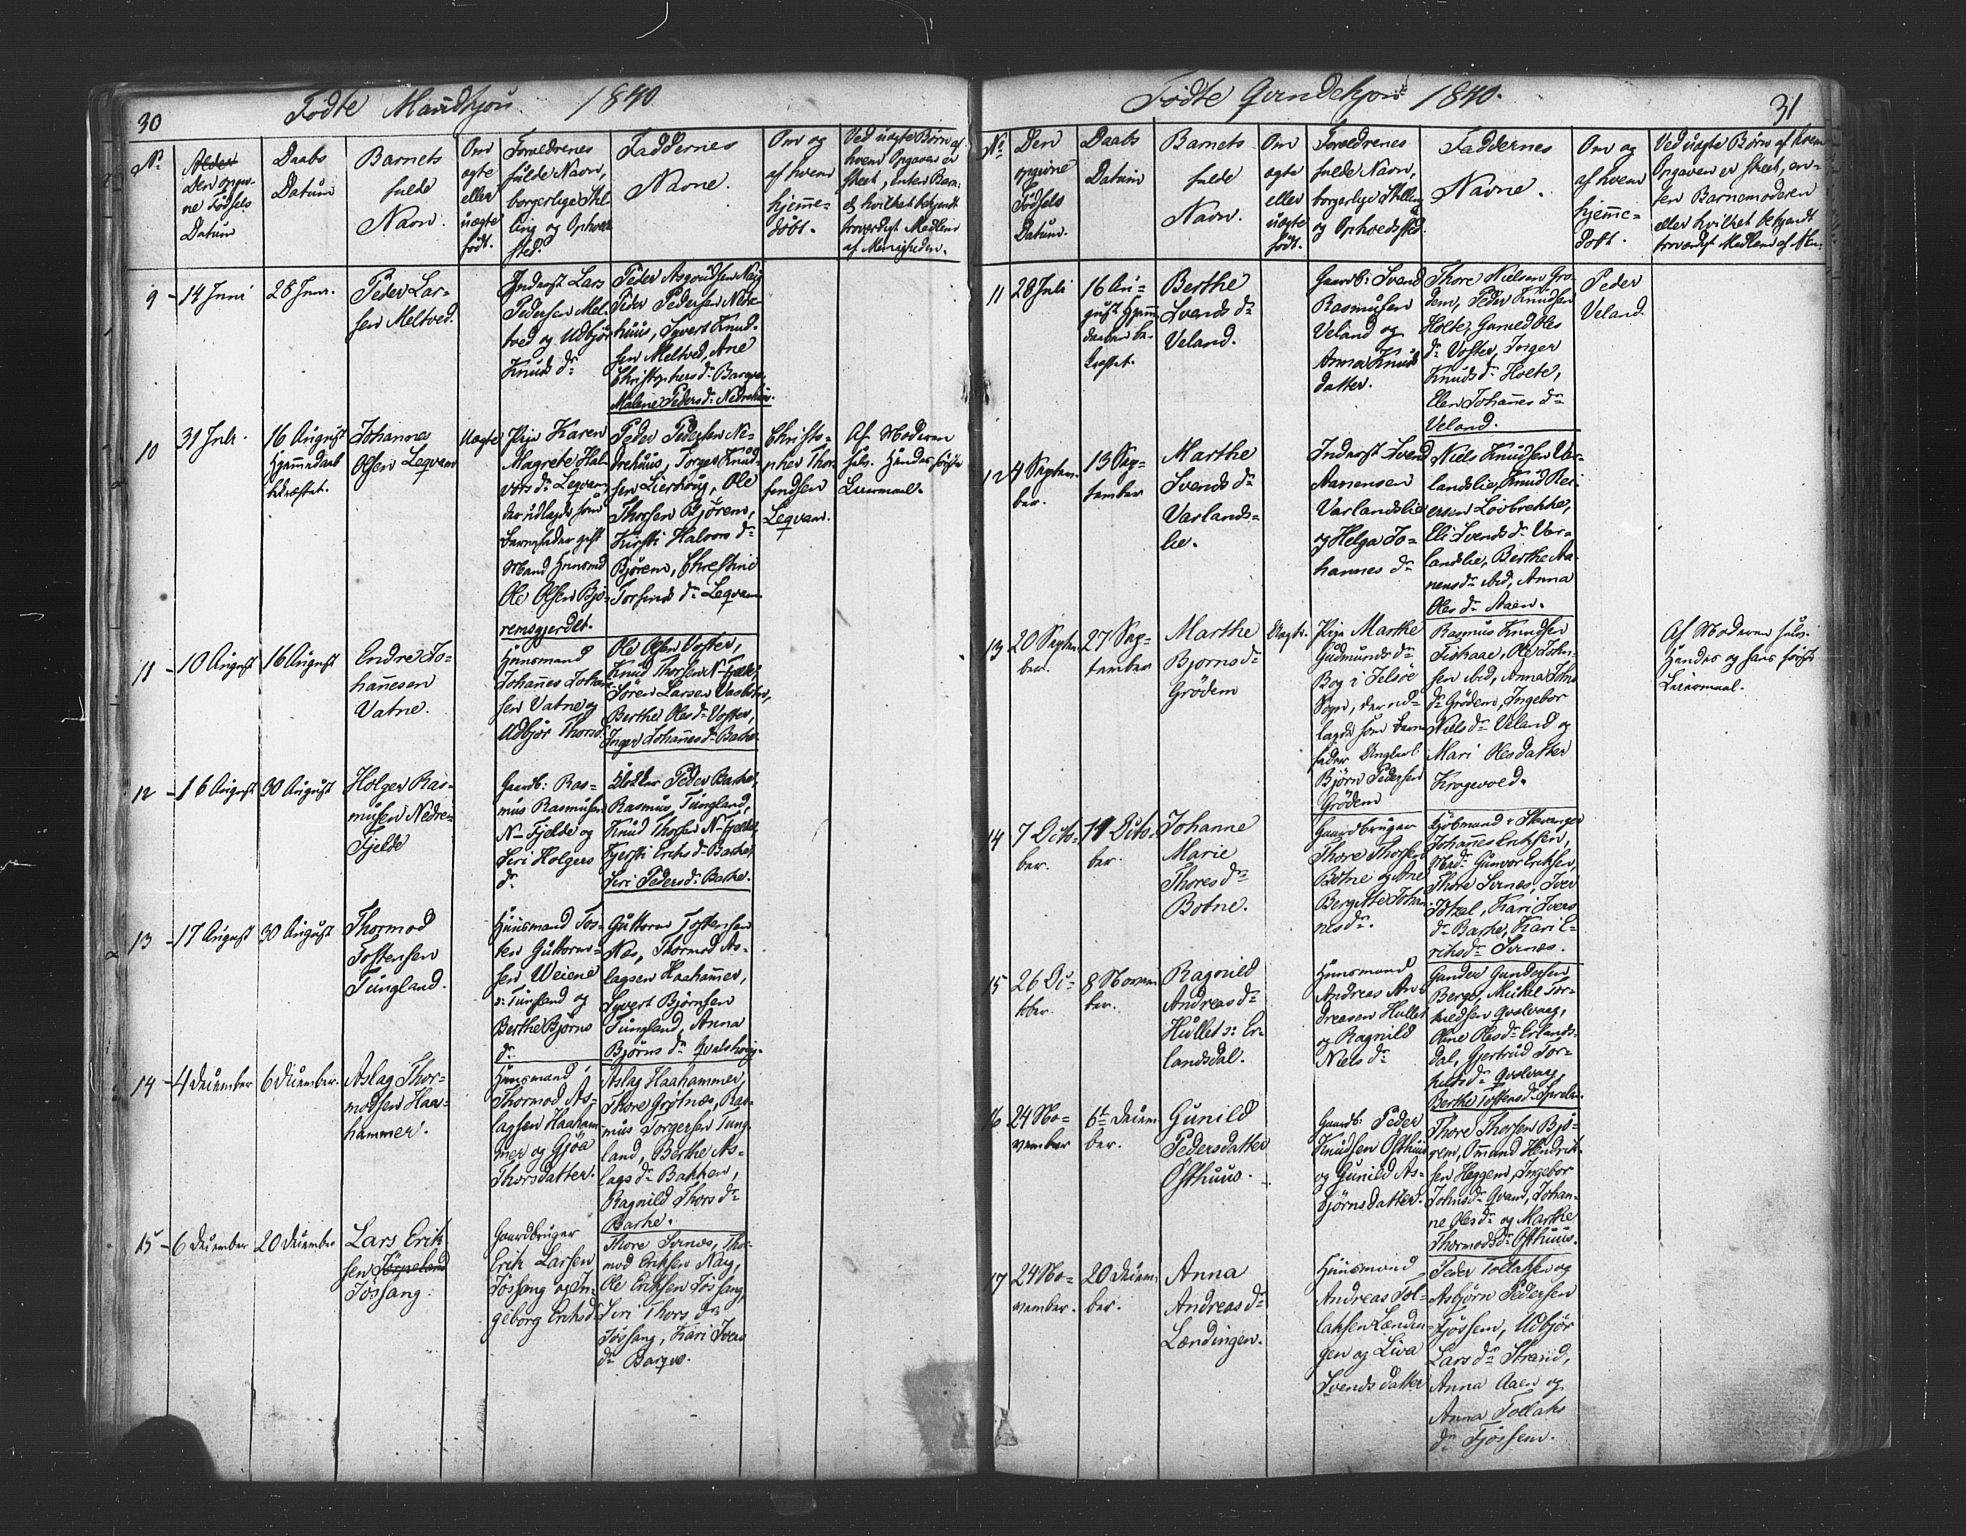 30
Födte Mandkjön 1840
No
Alder
Den opgivne Födsels Datum
Daabs Datum
Barnets fulde Navn.
Om ægte eller uægte født.
Forældrenes fulde Navn, borgerlige Stilling og Opholdssted.
Faddernes Navne.
Om og af hvem hjemmedöbt.
Ved uægte Børn af hvem Opgaven er skeet, enten Barnets hvilket bekjendt troværdigt Medlem af Menigheden.
9
14 Juni
28 Juni.
Peder Larsen Meltved.
Inderst Lars
Pedersen Meltved og Udbjör
Knuds dr
Peder Asgoudsen Nag
Peder Pedersen Nedrehuus, Syvert Knudsen Meltved, Ane
Christophers dr Barqve
Malene Peders dr Nedrehuus.
10
31 Juli.
16 August
Hjemmedaab
bekræftet.
Johanne
Olsen Leqvam
Uægte
Pige Karen
Magrete Halvors dr Leqvam
der udlagde som
Barnefader gift
Mand Huusmd
Ole Olsen Björemsgjerdet.
Peder Pedersen Nedrehuus, Torger Knudsen Lierhoug, Ole
Thorsen Björem,
Kirsti Halvors dr
Björem, Christine
Torfinds dr Leqvam
Christopher Thorfindsen
Leqvam.
Af Moderen
selv. Hendes förste
Leiermaal.
11
10 August
16 August
Endre Johannesen
Vatne.
Huusmand
Johannes Johannesen Vatne og
Udbjör Thorsdr
Ole Olsen Voster,
Knud Thorsen N. Fjelde,
Sören Larsen Vasbotn,
Berthe Oles dr Voster,
Inger Johannes dr Barke.
12
16 August
30 August
Holger Rasmusen Nedre
Fjelde
Gaardb: Rasmus Rasmusen
N. Fjelde og
Siri Holgers
dr
Klokker Peder Barke,
Rasmus Tungland,
Knud Thorsen N. Fjelde,
Kjersti Eriks dr Barke,
Siri Peders dr Barke.
13
17 August
30 August
Thormod
Tostensen
Tungland.
Huusmand Tosten Guttormsen Weiene
v: Tungland og
Berthe Björns
dr
Guttorm Tostensen
Næs, Thormod Aslagsen Haahammer,
Syvert Björnsen
Tungland, Anna
Björns dr Qvalshoug.
14
4 December
6 December.
Aslag Thormodsen Haahammer.
Huusmand
Thormod Aslagsen Haahammer og Gjöa
Thorsdatter.
Aslag Haahammer,
Thore Grötnæs, Rasmus Torgersen Tungland, Berthe Aslags dr Bakken,
Ragnild Thors dr
Barke.
15
6 December
20 December
Lars Eriksen Jörpeland
Jössang.
Gaardbruger
Erik Larsen
Jössang og Ingeborg Eriksd
Thore Svines, Thormod Eriksen Nag,
Ole Eriksen Jössang,
Siri Thors dr
Jössang, Kari Ivers
dr Barqve.
31
Födte Qvindekjön 1840.
No
Den opgivne Födsels Datum.
Daabs Datum
Barnets fulde Navn.
Om ægte eller uægte født.
Forældrenes fulde Navn, borgerlige Stilling og Opholdssted.
Faddernes Navne.
Om og af hvem hjemmedöbt.
Ved uægte Børn af hvem Opgaven er skeet, enten Barnemoderen eller hvilket bekjendt troværdigt Medlem af Men.
11
28 Juli
16 August Hjemmedaaben bekræftet.
Berthe
Svends dr
Veland.
Gaardb: Svend
Rasmusen
Veland og
Anna Knuds
datter.
Thore Nielsen Grödem, Peder Knudsen
Holte, Gunild Oles
dr Voster, Inger
Knuds dr Holte,
Elen Johannes dr
Veland.
Peder
Veland.
12
4 September.
13 September
Marthe
Svends dr
Varlandslie.
Inderst Svend
Aanensen
Varlandslie
og Helga Johannes dr
Niels Knudsen Varlandslie, Knud Reiersen Lövbrekke,
Elli Svends dr Varlandslie, Berthe Aanens dr ibid, Anna
Oles dr Aaen.
13
20 September.
27 September
Marthe
Bjorns dr
Grödem
Uægte.
Pige Marthe
Gudmunds dr
Bog i Jelsöe
Sogn, der udlagde som Barnefader Ungkarl
Björn Pedersen
Grödem
Rasmus Knudsen
Tiskaae, Ole Johnsen ibid, Anna Johns
dr Grödem, Ingebor
Niels dr Veland og
Mari Olesdatter
Krogevold.
Af Moderen selv.
Hendes og hans förste
Leiermaal.
14
7 October.
11 October.
Johanne
Marie
Thores dr
Botne.
Gaardbruger
Thore Thorsen
Botne og Ane
Bergitte Johannes dr.
Kjöbmand i Stavanger
Johannes Eriksen,
Mad. Gunvor Eriksen,
Thore Svines, Iver
Jötzel, Kari Ivers
dr Barke, Kari Eriks dr Svines.
15
26 October.
8 November.
Ragnild
Andreas dr
Hullet v: Erlandsdal.
Huusmand
Andreas Andreasen Hullet
og Ragnild
Niels dr
Gunder Gundersen
Berge, Mikkel Torkildsen Qvalvaag,
Oline Oles dr Erlandsdal, Gjertrud Torkilds dr Qvalvaag,
Berthe Tostens dr
16
24 November
6te December.
Gunild
Pedersdatter
Östhuus.
Gaardb: Peder
Knudsen Östhuus
og Gunild Asbjörnsdatter.
Thore Thorsen Björem, Ommund Hendriksen Heggem, Ingebor
Johns dr Qvam, Johanne Oles dr og Marthe
Thormods dr Östhuus.
17
24 November.
20 December.
Anna
Andreas dr
Lændingen.
Huusmand
Andreas Tollaksen Lændingen og Liva
Svends datter
Peder Tollaksen og
Asbjörn Pedersen
Fjössem, Udbjör
Lars dr Strand,
Anna Aaen og
Anna Tollaks
dr Fjössem.